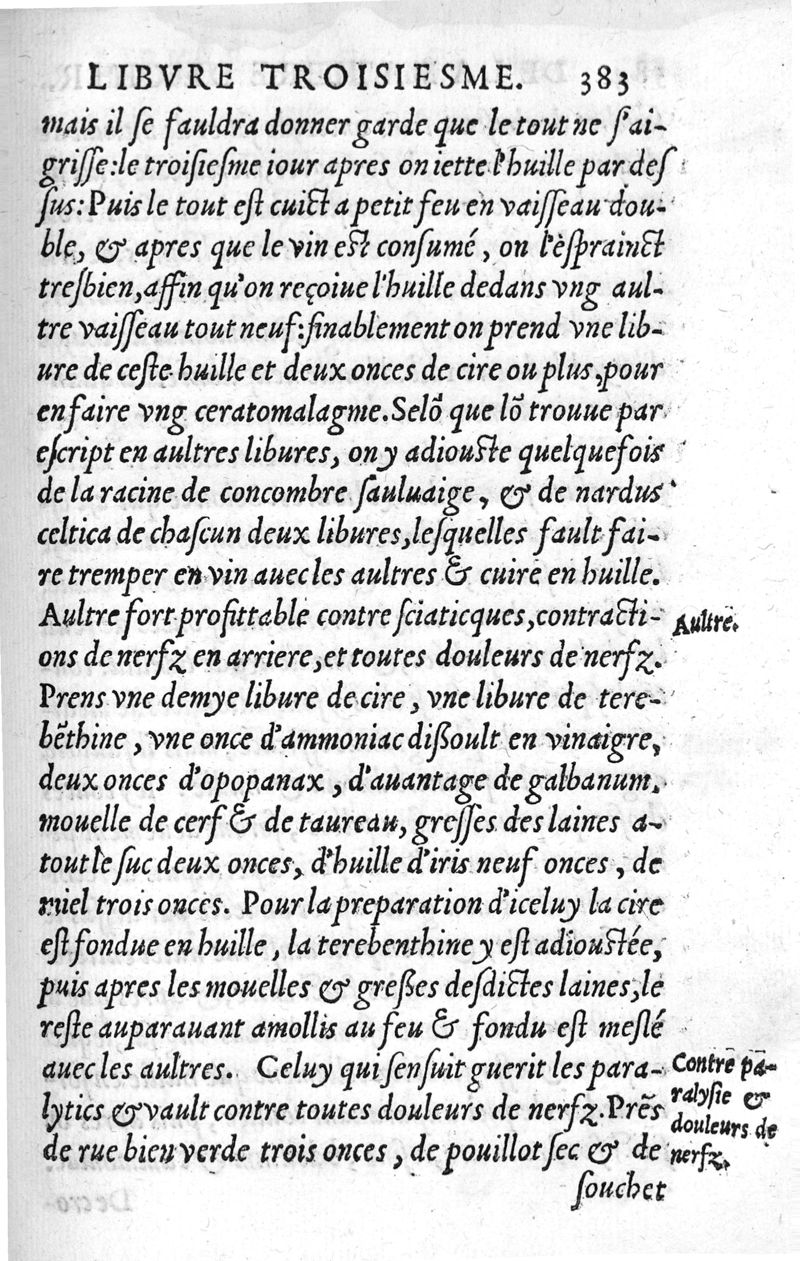 LIBVRE TROISIESME. 383
mais il ſe fauldra donner garde que le tout ne ſ'ai-
griſſe: le troiſieſme iour apres on iette l'huille par deſ
ſus: Puis le tout eſt cuict a petit feu en vaiſſeau dou-
ble, & apres que le vin eſt conſumé, on l'eſprainct
treſbien, affin qu'on reçoiue l'huille dedans vng aul-
tre vaiſſeau tout neuf: finablement on prend vne lib-
ure de ceſte huille et deux onces de cire ou plus, pour
en faire vng ceratomalagme. Selõ que lõ trouue par
eſcript en aultres libures, on y adiouſte quelquefois
de la racine de concombre ſauluaige, & de nardus
celtica de chaſcun deux libures, leſquelles fault fai-
re tremper en vin auec les aultres & cuire en huille.
Aultre fort profittable contre ſciaticques, contracti-
ons de nerfz en arriere, et toutes douleurs de nerfz.
Aultre.
Prens vne demye libure de cire, vne libure de tere-
bẽthine, vne once d'ammoniac diſſoult en vinaigre,
deux onces d'opopanax, d'auantage de galbanum,
mouelle de cerf & de taureau, greſſes des laines a-
tout le ſuc deux onces, d'huille d'iris neuf onces, de
miel trois onces. Pour la preparation d'iceluy la cire
eſt fondue en huille, la terebenthine y eſt adiouſtée,
puis apres les mouelles & greſſes deſdictes laines, le
reſte auparauant amollis au feu & fondu eſt meſlé
auec les aultres. Celuy qui ſenſuit guerit les para-
lytics & vault contre toutes douleurs de nerfz. Prẽs
de rue bien verde trois onces, de pouillot ſec & de
Contre pa-
ralyſie &
douleurs de
nerfz.
ſouchet